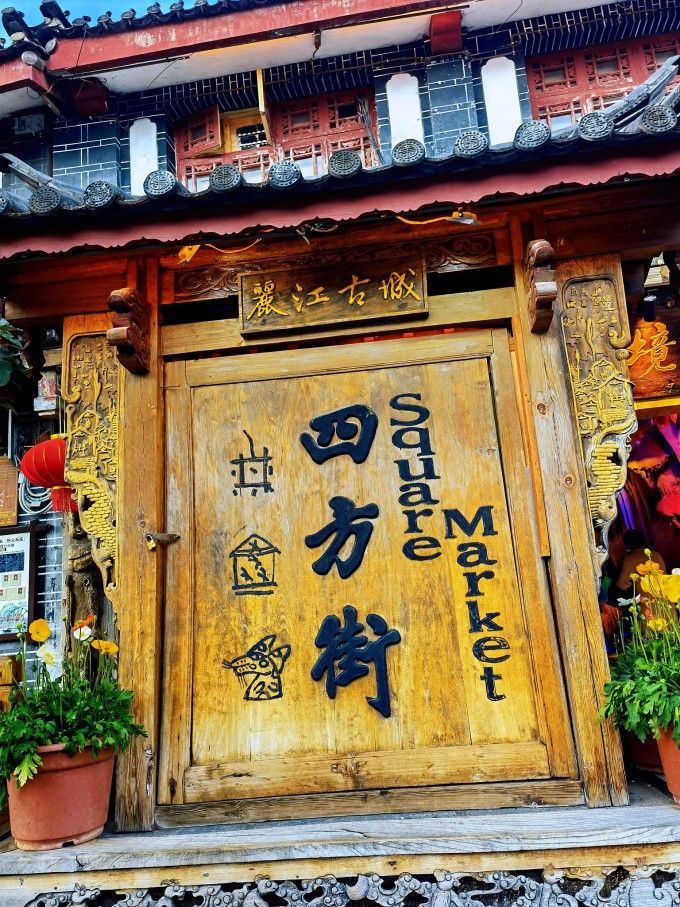 麗江古城
四方街
Square
Market
境